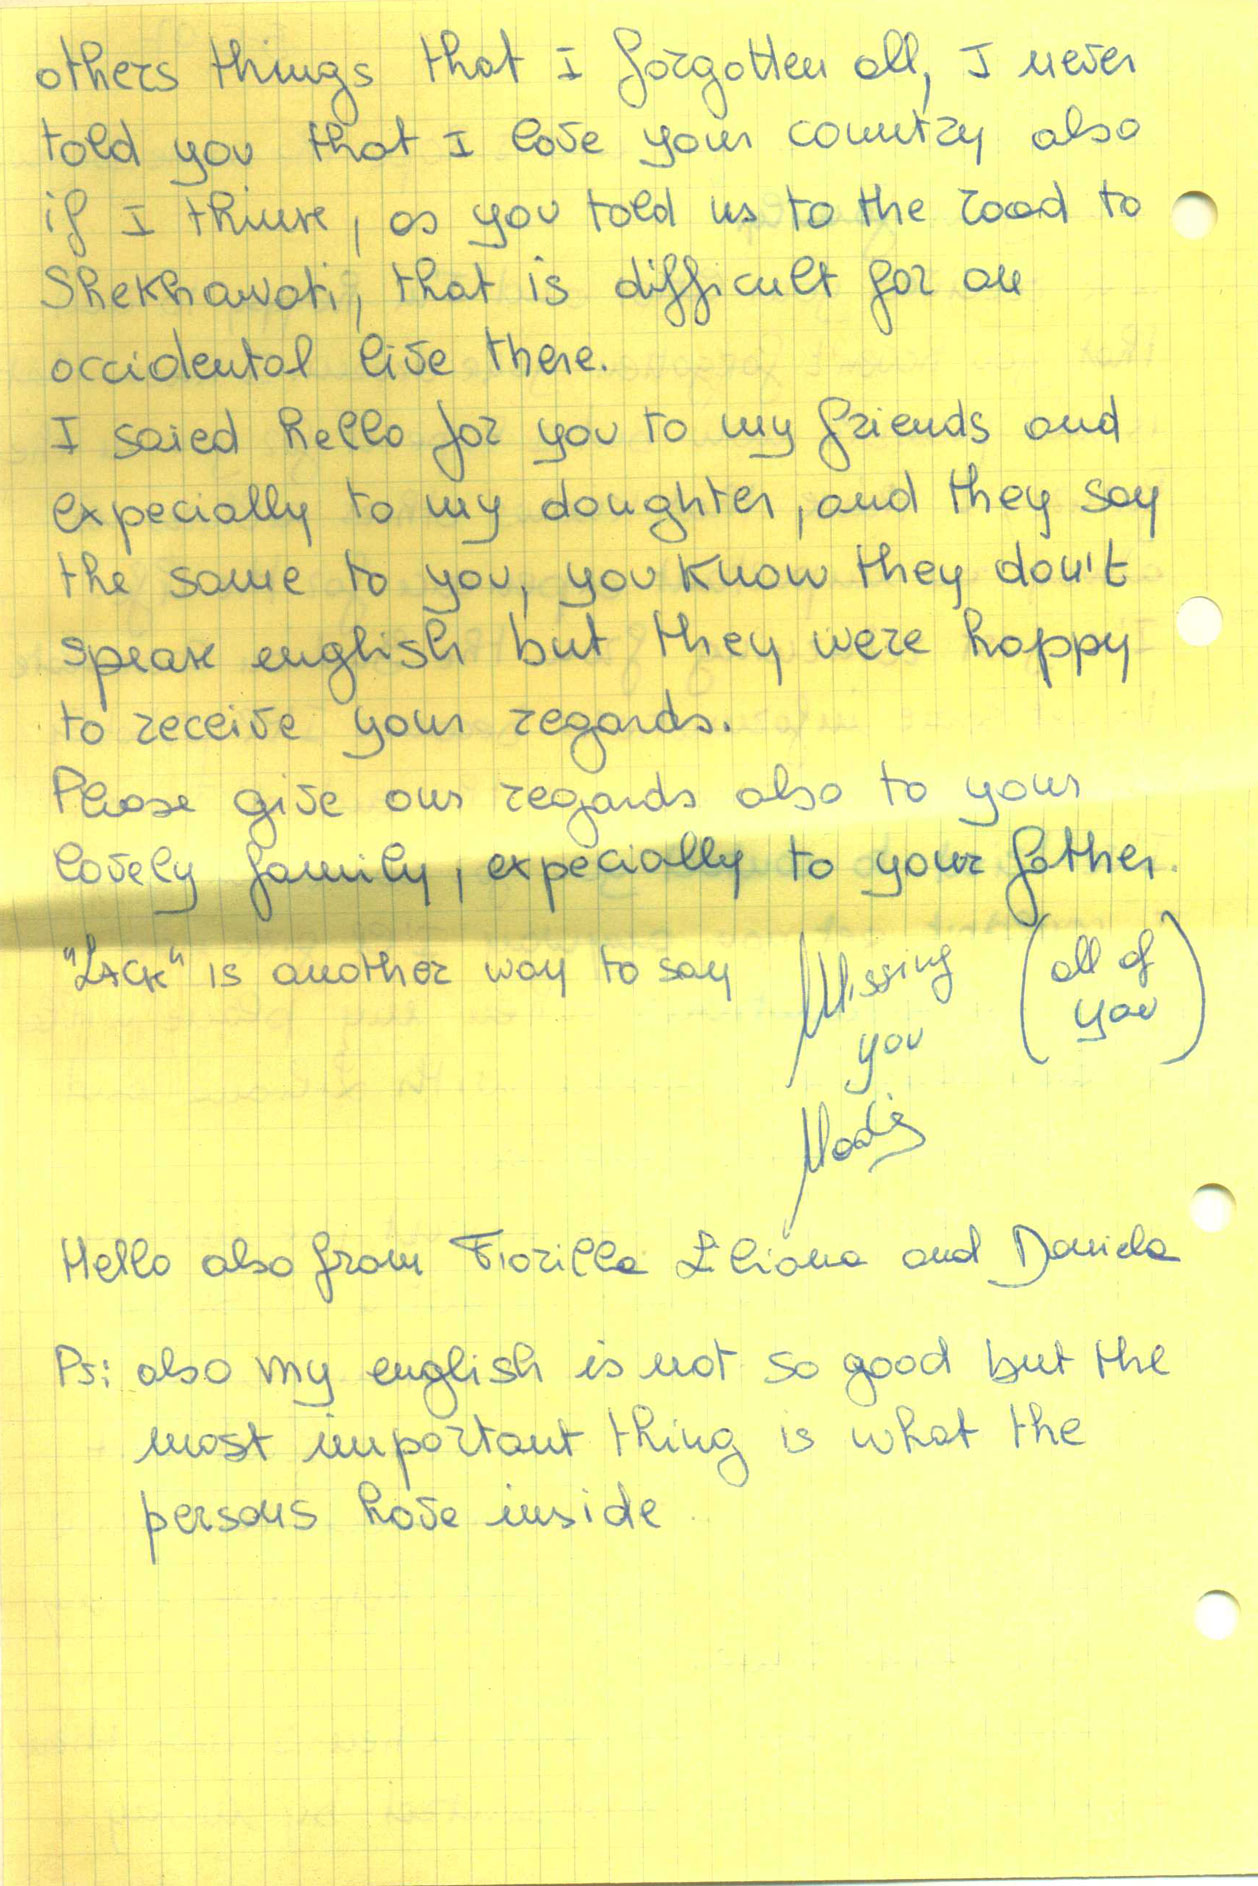 others things that I forgotten all, I never
told you that I love your country also
if I think, as you told us to the road to
Shekhawati, that is difficult for an
occidental live there.
I saied hello for you to my friends and
expecially to my doughter, and they say
the same to you, you know they don't
speak english but they were happy
to receive your regards.
Please give our regards also to your
lovely family, expecially to your father.
"LACK" is another way to say Missing you (all of you)
Hello also from Fiorella Liliana and Daniela
Ps: also my english is not so good but the
most important thing is what the
persons have inside